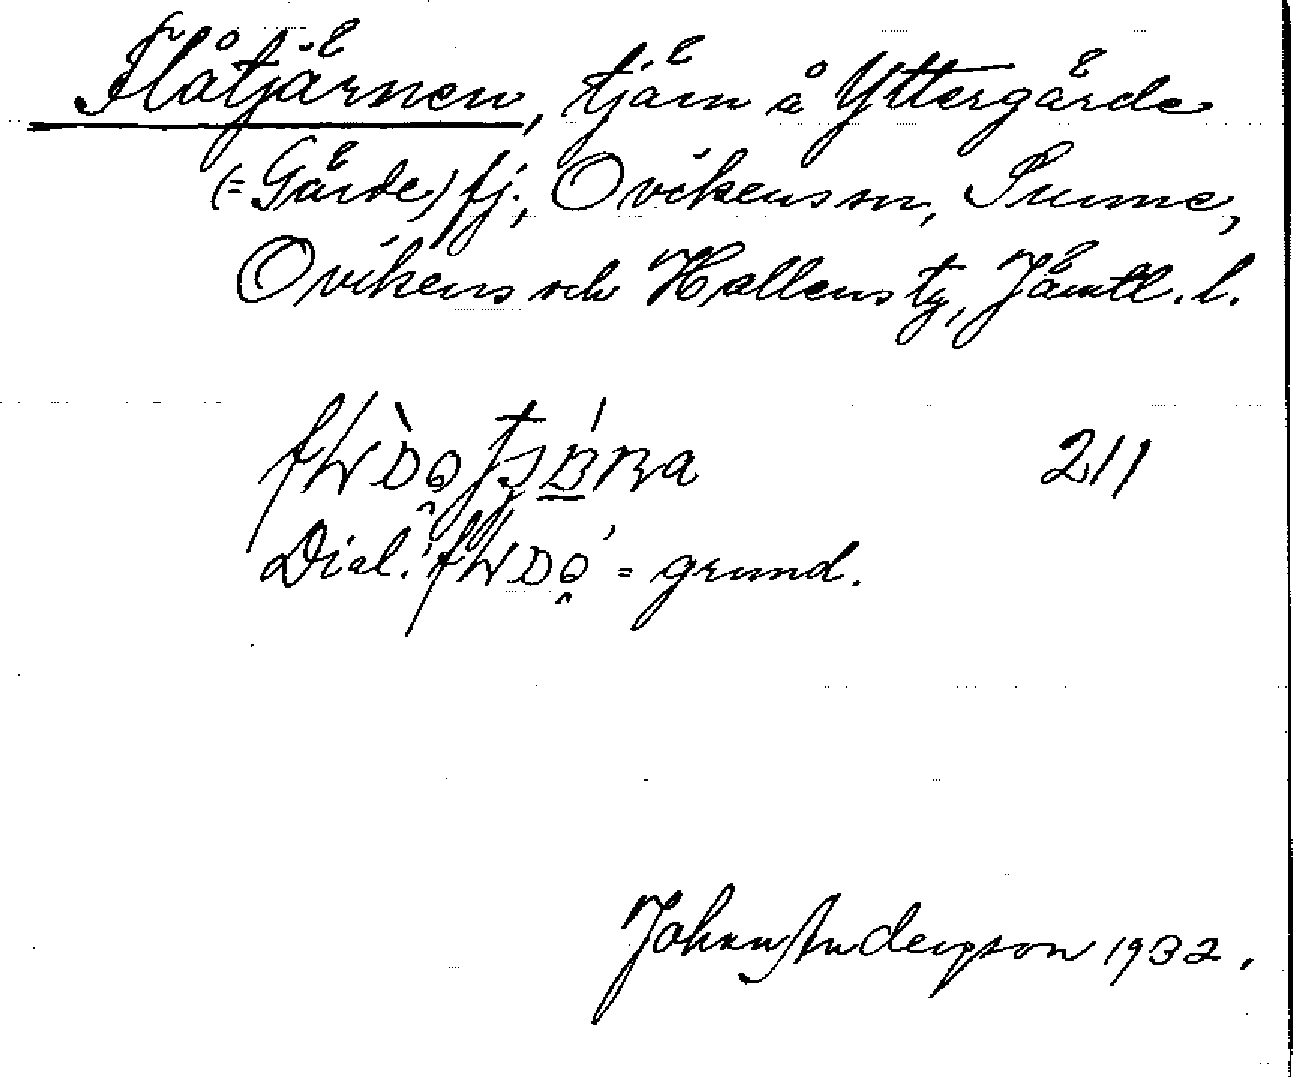 Flåtjärnen, tjärn å Yttergärde
(= Gärde) fj., Ovikens sn,
Ovikens och Hallens tg, Jämtl. l.
211
Dial. = grund.
Johan Anderson 1932.